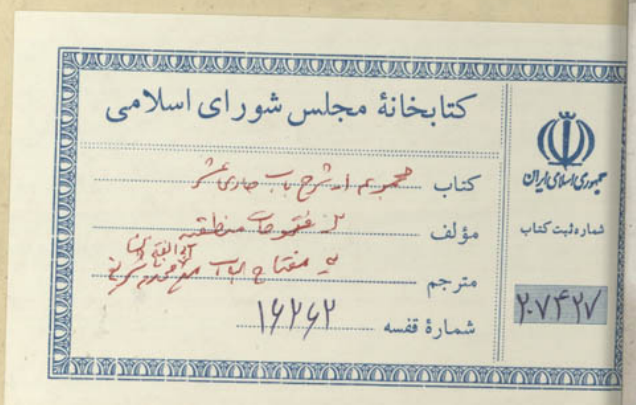 کتابخانهٔ مجلس شورای اسلامی
کتاب مجموعه ۱ـ شرح باب حادی عشر
مؤلف ۲ـ منطقیه
مترجم ۳ـ مفتاح الباب ابوالفتح
شمارهٔ قفسه ۱۶۲۶۲
جمهوری اسلامی ایران
شماره ثبت کتاب
۲۰۷۴۲۷